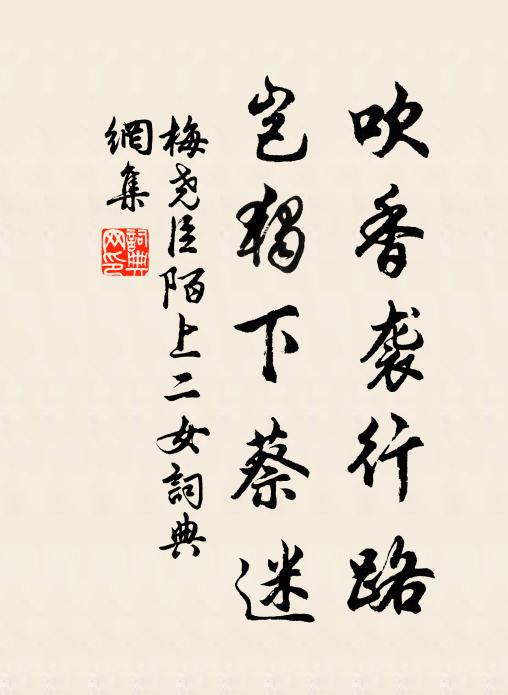 吹香袭行路
岂独下蔡迷
梅尧臣陌上二女詞典
網集
詞典网印